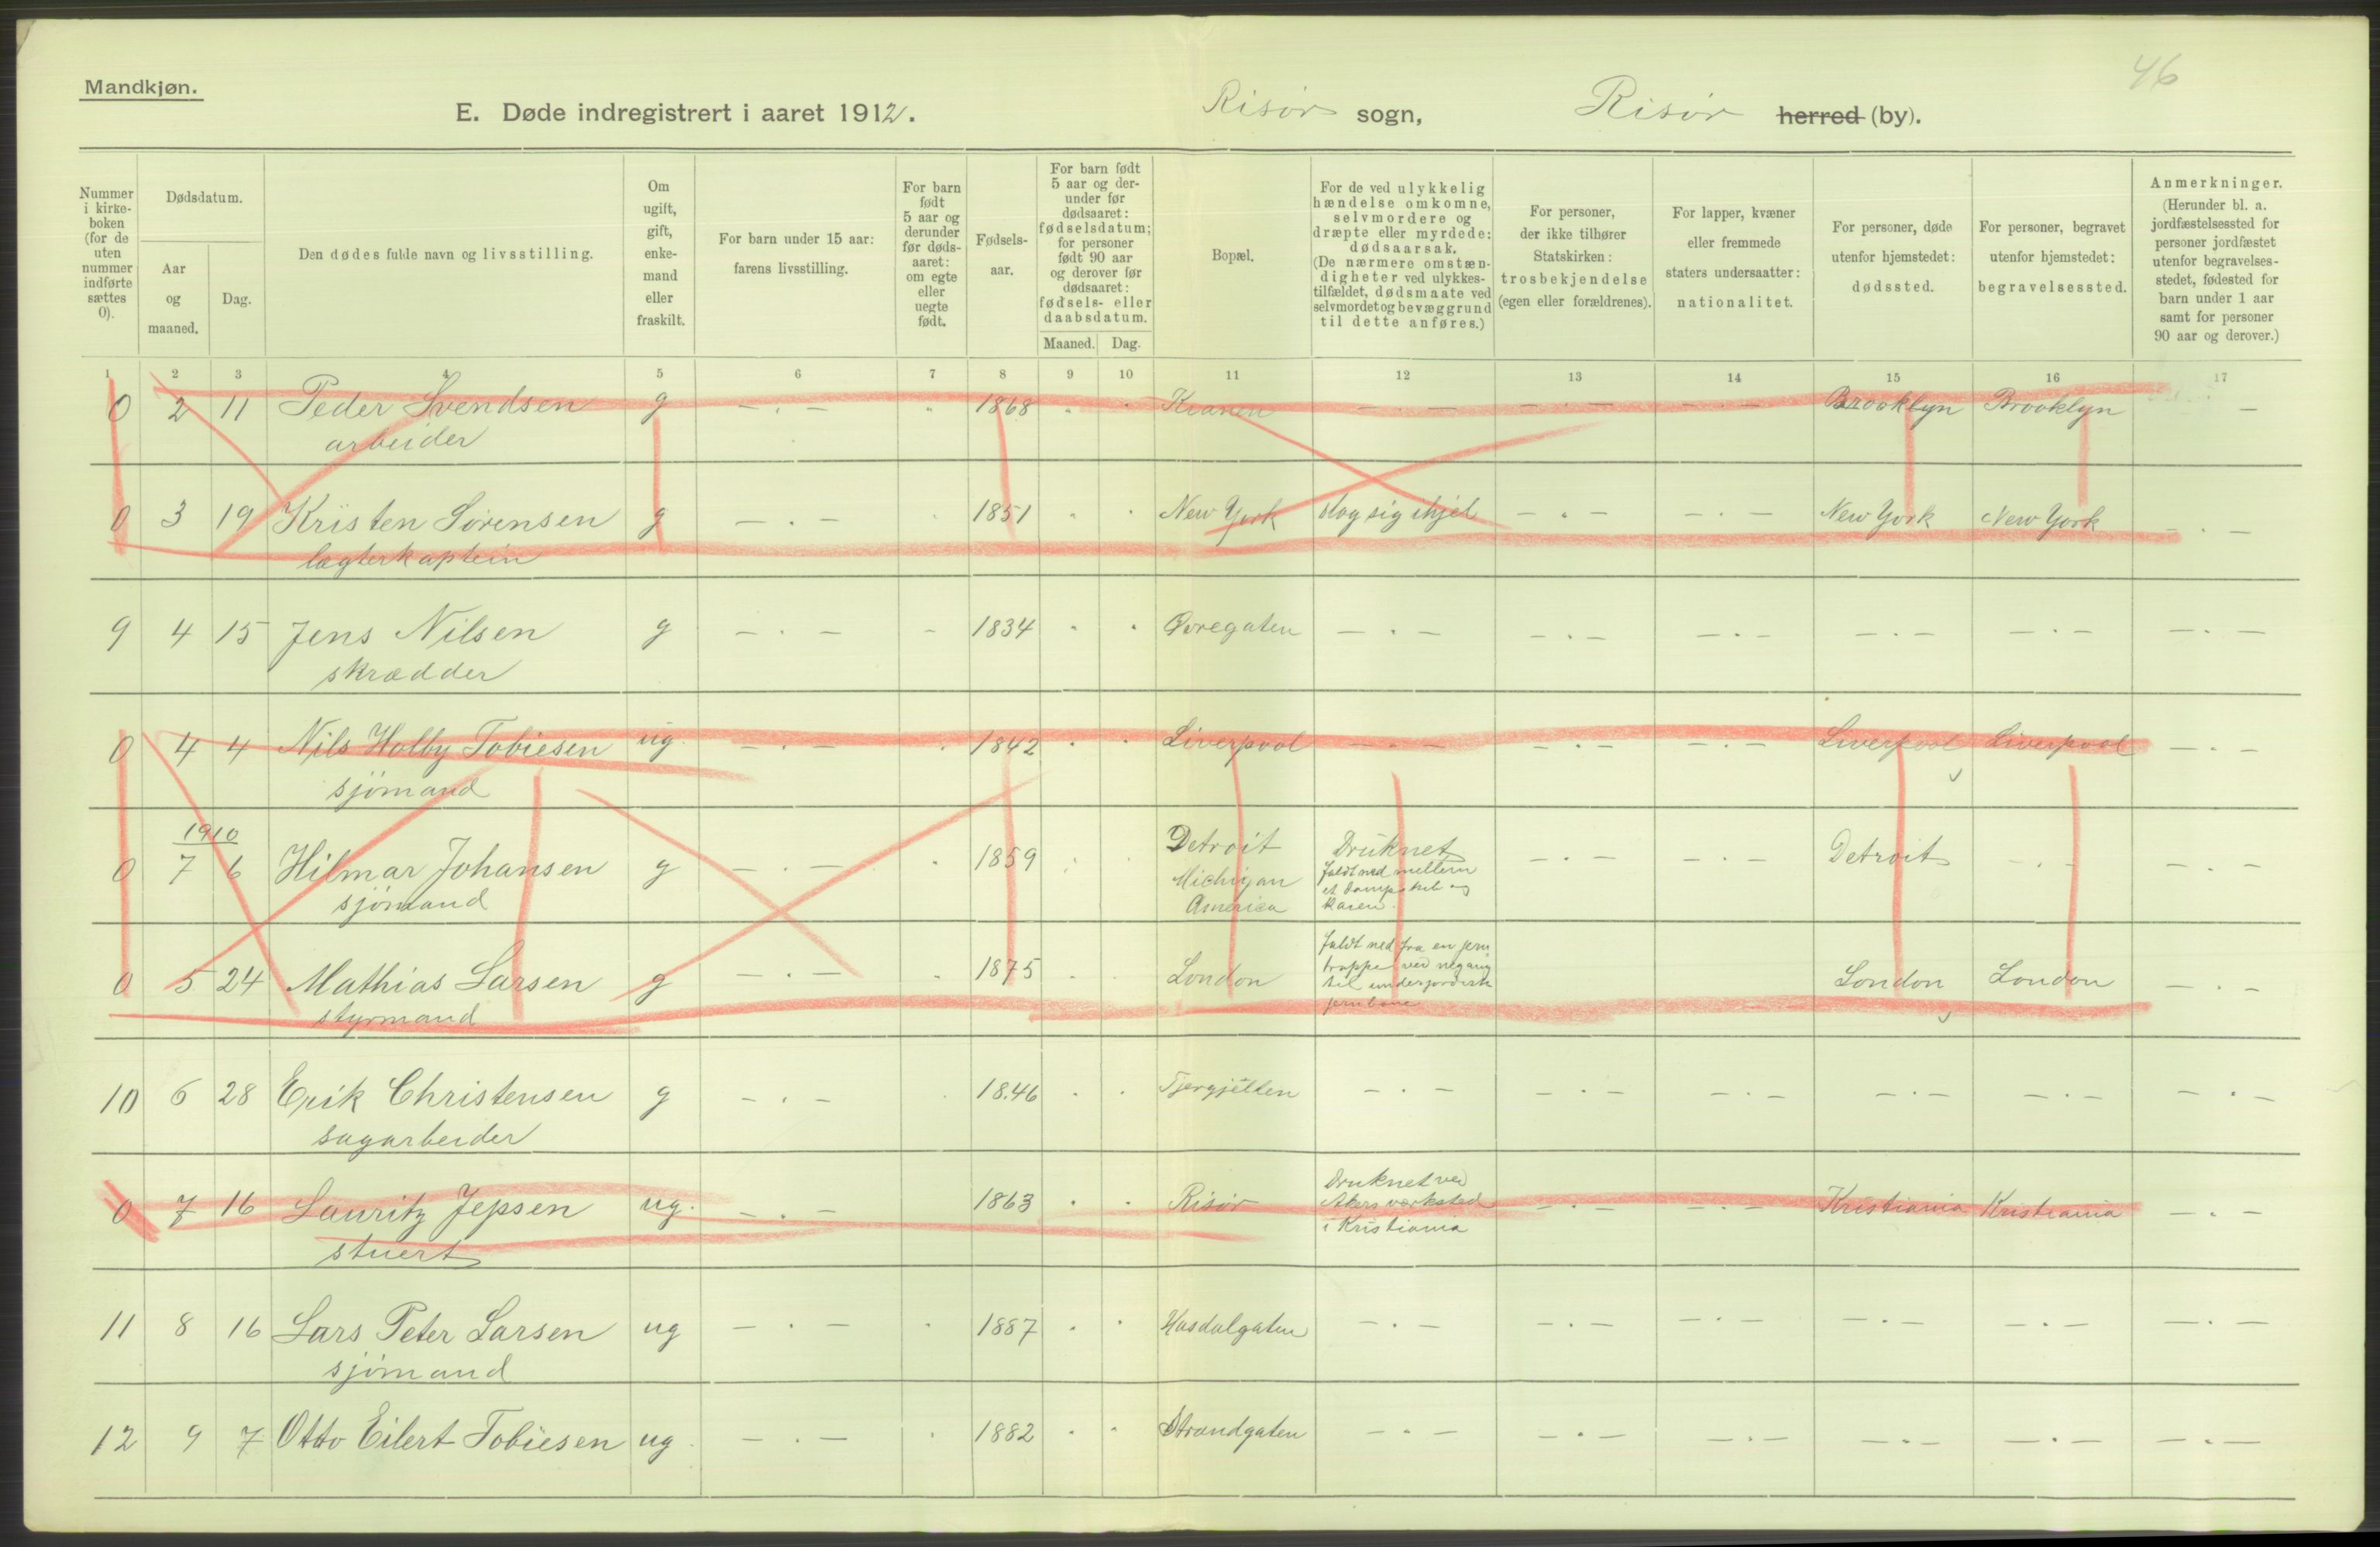 46
Mandkjøn.
E. Døde indregistrert i aaret 1912.
Risör sogn,
Risör herred (by).
Nummer i kirke-boken (for de uten nummer indførte sættes 0).
Dødsdatum.
Aar og maaned.
Dag.
Den dødes fulde navn og livsstilling.
Om ugift, gift, enke-mand eller fraskilt.
For barn under 15 aar: farens livsstilling.
For barn født 5 aar og derunder før døds-aaret: om egte eller uegte født.
Fødsels-aar.
For barn født 5 aar og der-under før dødsaaret: fødselsdatum; for personer født 90 aar og derover før dødsaaret: fødsels- eller daabsdatum.
Maaned.
Dag.
Bopæl.
For de ved ulykkelig hændelse omkomne, selvmordere og dræpte eller myrdede: dødsaarsak. (De nærmere omstæn-digheter ved ulykkes-tilfældet, dødsmaate ved selvmordet og bevæggrund til dette anføres.)
For personer, der ikke tilhører Statskirken: trosbekjendelse (egen eller forældrenes).
For lapper, kvæner eller fremmede staters undersaatter: nationalitet.
For personer, døde utenfor hjemstedet: dødssted.
For personer, begravet utenfor hjemstedet: begravelsessted.
Anmerkninger. (Herunder bl. a. jordfæstelsessted for personer jordfæstet utenfor begravelses-stedet, fødested for barn under 1 aar samt for personer 90 aar og derover.)
1 2 3 4 5 6 7 8 9 10 11 12 13 14 15 16 17
0 2 11 Peder Svendsen g - . - 1868 Kranen - . - - . - - . - Brooklyn Brooklyn -
arbeider
0 3 19 Kristen Sörensen g - . - 1851 New York slog sig ihjel - . - - . - New York New York - . -
lægterkaptein
9 4 15 Jens Nilsen g - . - - 1834 Øvregaten - . - - . - - . - - . - - . - - . -
skrædder
0 4 4 Nils Holby Tobiesen ug. - . - 1842 Liverpool - . - - . - - . - Liverpool Liverpool - . -
sjömand
1910
0 7 6 Hilmar Johansen g - . - 1859 Detroit Michigan America Druknet faldt ned mellem et dampskib og kaien. - . - - . - Detroit - . - - . -
sjömand
0 5 24 Mathias Larsen g - . - 1875 London faldt ned fra en jern trappe ved negang til underjordisk jernbane London London - . -
styrmand
10 6 28 Erik Christensen g - . - 1846 - . - - . - - . - - . - - . - - . -
sagarbeider
0 7 16 Lauritz Jepsen ug. - . - 1863 Risör Druknet ved Akers værksted i Kristiania - . - - . - Kristiania Kristiania - . -
stuert
11 8 16 Lars Peter Larsen ug - . - 1887 Hasdalgaten - . - - . - - . - - . - - . - - . -
sjömand
12 9 7 Otto Eilert Tobiesen ug. - . - 1882 Strandgaten - . - - . - - . - - . - - . - - . -